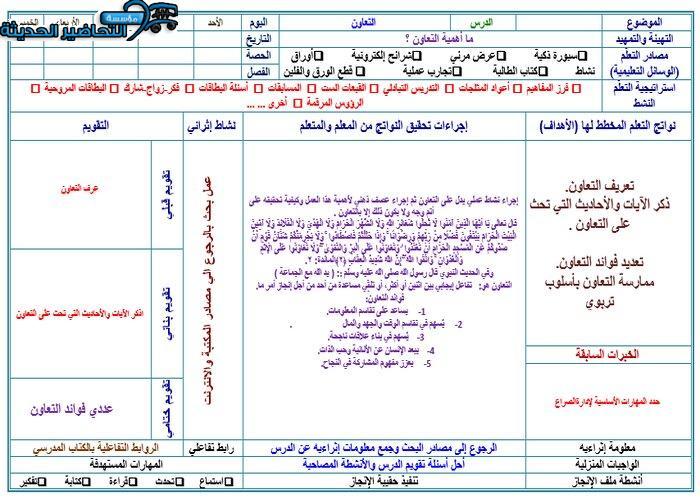 مؤسسة
التحاضير الحديثة
الموضوع
الدرس
التعاون
اليوم
الأحد
التهيئة والتمهيد
ما أهمية التعاون ؟
التاريخ
مصادر التعلم
(الوسائل التعليمية)
سبورة ذكية
عرض مرئي
شرائح إلكترونية
أوراق
نشاط
كتاب الطالبة
تجارب عملية
قطع الورق والفلين
الحصة
الفصل
استراتيجية التعلم
النشط
فرز المفاهيم
أعواد المثلجات
التدريس التبادلي
القبعات الست
المسابقات
أسئلة البطاقات
فكر-زواج-شارك
البطاقات المروحية
الرؤوس المرقمة
أخرى ... ...
نواتج التعلم المخطط لها (الأهداف)
إجراءات تحقيق النواتج من المعلم والمتعلم
نشاط إثرائي
التقويم
تعريف التعاون.
ذكر الآيات والأحاديث التي تحث
على التعاون .
تعديد فوائد التعاون.
ممارسة التعاون بأسلوب
تربوي
الخبرات السابقة
حدد المهارات الأساسية لإدارة الصراع
إجراء نشاط عملي يدل على التعاون ثم إجراء عصف ذهني لأهمية هذا العمل وكيفية تحقيقه على
أتم وجه ولا يكون ذلك إلا بالتعاون .
قال تعالى يَا أَيُّهَا الَّذِينَ آمَنُوا لَا تُحِلُّوا شَعَائِرَ اللَّهِ وَلَا الشَّهْرَ الْحَرَامَ وَلَا الْهَدْيَ وَلَا الْقَلَائِدَ وَلَا آمِّينَ
الْبَيْتَ الْحَرَامَ يَبْتَغُونَ فَضْلًا مِنْ رَبِّهِمْ وَرِضْوَانًا وَإِذَا حَلَلْتُمْ فَاصْطَادُوا وَلَا يَجْرِمَنَّكُمْ شَنَآنُ قَوْمٍ أَنْ
صَدُّوكُمْ عَنِ الْمَسْجِدِ الْحَرَامِ أَنْ تَعْتَدُوا وَتَعَاوَنُوا عَلَى الْبِرِّ وَالتَّقْوَى وَلَا تَعَاوَنُوا عَلَى الْإِثْمِ
وَالْعُدْوَانِ وَاتَّقُوا اللَّهَ إِنَّ اللَّهَ شَدِيدُ الْعِقَابِ (٢)المائدة: ٢.
وفي الحديث النبوي قال رسول الله صلى الله عليه وسلم :: ( يد الله مع الجماعة )
التعاون هو: تفاعل إيجابي بين اثنين أو أكثر، أو تلقي مساعدة من أحد من أجل إنجاز أمر ما.
فوائد التعاون:
1- يساعد على تقاسم المعلومات.
2- يُسهم في تقاسم الوقت والجهد والمال .
3- يُسهم في بناء علاقات ناجحة.
4- يبعد الإنسان عن الأنانية وحب الذات.
5- يعزز مفهوم المشاركة في النجاح.
عمل بحث بالرجوع الي مصادر المكتبة والانترنت
تقويم قبلي
عرف التعاون
تقويم بنائي
اذكر الآيات والأحاديث التي تحث على التعاون
تقويم ختامي
عددي فوائد التعاون
معلومة إثرائيه
الرجوع إلى مصادر البحث وجمع معلومات إثرائيه عن الدرس
رابط تفاعلي
الروابط التفاعلية بالكتاب المدرسي
الواجبات المنزلية
أحل أسئلة تقويم الدرس والأنشطة المصاحبة
المهارات المستهدفة
أنشطة ملف الإنجاز
تنفيذ حقيبة الإنجاز
استماع
تحدث
قراءة
كتابة
تفكير